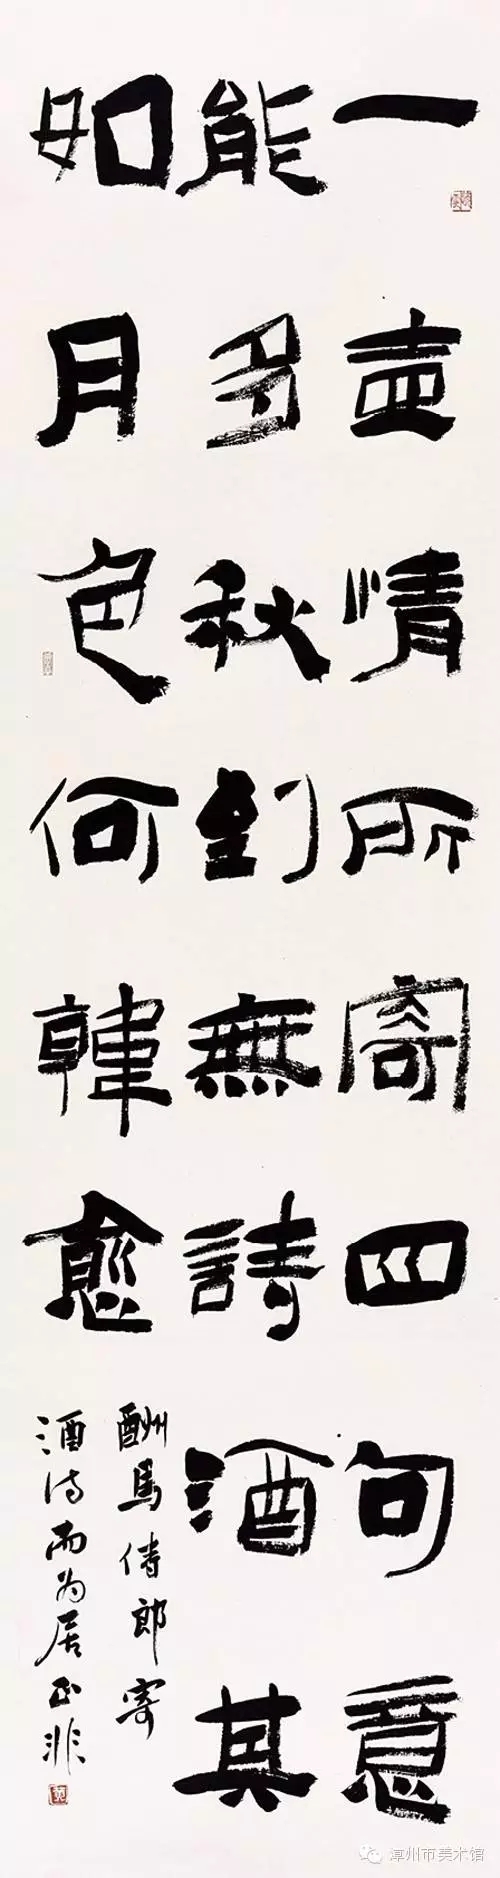 一壺情所寄四句意
能多秋到無詩酒其
如月色何韓愈
酬馬侍郎寄
酒诗而为居正非
漳州市美术馆